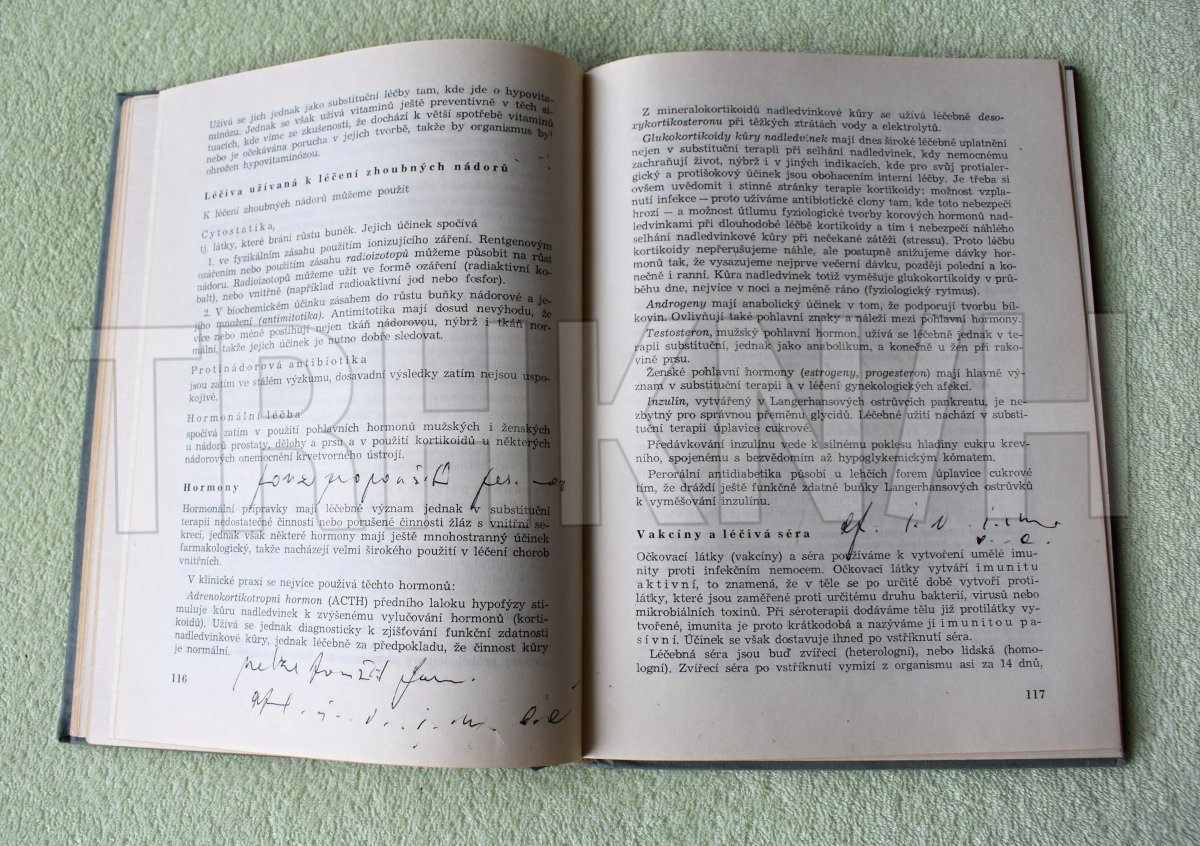 Užívá se jich jednak jako substituční léčby tam, kde jde o hypovita-
minózu. Jednak se však užívá vitaminů ještě preventivně v těch si-
tuacích, kde víme ze zkušenosti, že dochází k větší spotřebě vitaminů
nebo je očekávána porucha v jejich tvorbě, takže by organismus by!
ohrožen hypovitaminózou.
Léčiva užívaná k léčení zhoubných nádorů
K léčení zhoubných nádorů můžeme použít
Cytostatika,
tj. látky, které brání růstu buněk. Jejich účinek spočívá
1. ve fyzikálním zásahu použitím ionizujícího záření. Rentgenovým
ozářením nebo použitím zásahu radioizotopů můžeme působit na růst
nádoru. Radioizotopů můžeme užít ve formě ozáření (radiaktivní ko-
balt), nebo vnitřně (například radioaktivní jod nebo fosfor).
2. V biochemickém účinku zásahem do růstu buňky nádorové a je-
jího množení (antimitotika). Antimitotika mají dosud nevýhodu, že
více nebo méně postihují nejen tkáň nádorovou, nýbrž i tkáň nor-
mální, takže jejich účinek je nutno dobře sledovat.
Protinádorová antibiotika
jsou zatím ve stálém výzkumu, dosavadní výsledky zatím nejsou uspo-
kojivé.
Hormonální léčba
spočívá zatím v použití pohlavních hormonů mužských i ženských
u nádorů prostaty, dělohy a prsu a v použití kortikoidů u některých
nádorových onemocnění krvetvorného ústrojí.
Hormony
Hormonální přípravky mají léčebně význam jednak v substituční
terapii nedostatečné činnosti nebo porušené činnosti žláz s vnitřní se-
krecí, jednak však některé hormony mají ještě mnohostranný účinek
farmakologický, takže nacházejí velmi širokého použití v léčení chorob
vnitřních.
V klinické praxi se nejvíce používá těchto hormonů:
Adrenokortikotropní hormon (ACTH) předního laloku hypofýzy sti-
muluje kůru nadledvinek k zvýšenému vylučování hormonů (korti-
koidů). Užívá se jednak diagnosticky k zjišťování funkční zdatnosti
nadledvinkové kůry, jednak léčebně za předpokladu, že činnost kůry
je normální.
116
Z mineralokortikoidů nadledvinkové kůry se užívá léčebně deso-
xykortikosteronu při těžkých ztrátách vody a elektrolytů.
Glukokortikoidy kůry nadledvinek mají dnes široké léčebné uplatnění
nejen v substituční terapii při selhání nadledvinek, kdy nemocnému
zachraňují život, nýbrž i v jiných indikacích, kde pro svůj protialer-
gický a protišokový účinek jsou obohacením interní léčby. Je třeba si
ovšem uvědomit i stinné stránky terapie kortikoidy: možnost vzpla-
nutí infekce — proto užíváme antibiotické clony tam, kde toto nebezpečí
hrozí — a možnost útlumu fyziologické tvorby korových hormonů nad-
ledvinkami při dlouhodobé léčbě kortikoidy a tím i nebezpečí náhlého
selhání nadledvinkové kůry při nečekané zátěži (stressu). Proto léčbu
kortikoidy nepřerušujeme náhle, ale postupně snižujeme dávky hor-
monů tak, že vysazujeme nejprve večerní dávku, později polední a ko-
nečně i ranní. Kůra nadledvinek totiž vyměšuje glukokortikoidy v prů-
běhu dne, nejvíce v noci a nejméně ráno (fyziologický rytmus).
Androgeny mají anabolický účinek v tom, že podporují tvorbu bíl-
kovin. Ovlivňují také pohlavní znaky a náleží mezi pohlavní hormony.
Testosteron, mužský pohlavní hormon, užívá se léčebně jednak v te-
rapii substituční, jednak jako anabolikum, a konečně u žen při rako-
vině prsu.
Ženské pohlavní hormony (estrogeny, progesteron) mají hlavně vý-
znam v substituční terapii a v léčení gynekologických afekcí.
Inzulín, vytvářený v Langerhansových ostrůvcích pankreatu, je ne-
zbytný pro správnou přeměnu glycidů. Léčebné užití nachází v substi-
tuční terapii úplavice cukrové.
Předávkování inzulínu vede k silnému poklesu hladiny cukru krev-
ního, spojenému s bezvědomím až hypoglykemickým kómatem.
Perorální antidiabetika působí u lehčích forem úplavice cukrové
tím, že dráždí ještě funkčně zdatné buňky Langerhansových ostrůvků
k vyměšování inzulínu.
Vakcíny a léčivá séra
Očkovací látky (vakcíny) a séra používáme k vytvoření umělé imu-
nity proti infekčním nemocem. Očkovací látky vytváří imunitu
aktivní, to znamená, že v těle se po určité době vytvoří proti-
látky, které jsou zaměřené proti určitému druhu bakterií, virusů nebo
mikrobiálních toxinů. Při séroterapii dodáváme tělu již protilátky vy-
tvořené, imunita je proto krátkodobá a nazýváme ji imunitou pa-
sívní. Účinek se však dostavuje ihned po vstříknutí séra.
Léčebná séra jsou buď zvířecí (heterologní), nebo lidská (homo-
logní). Zvířecí séra po vstříknutí vymizí z organismu asi za 14 dnů,
117
TRHKNIH